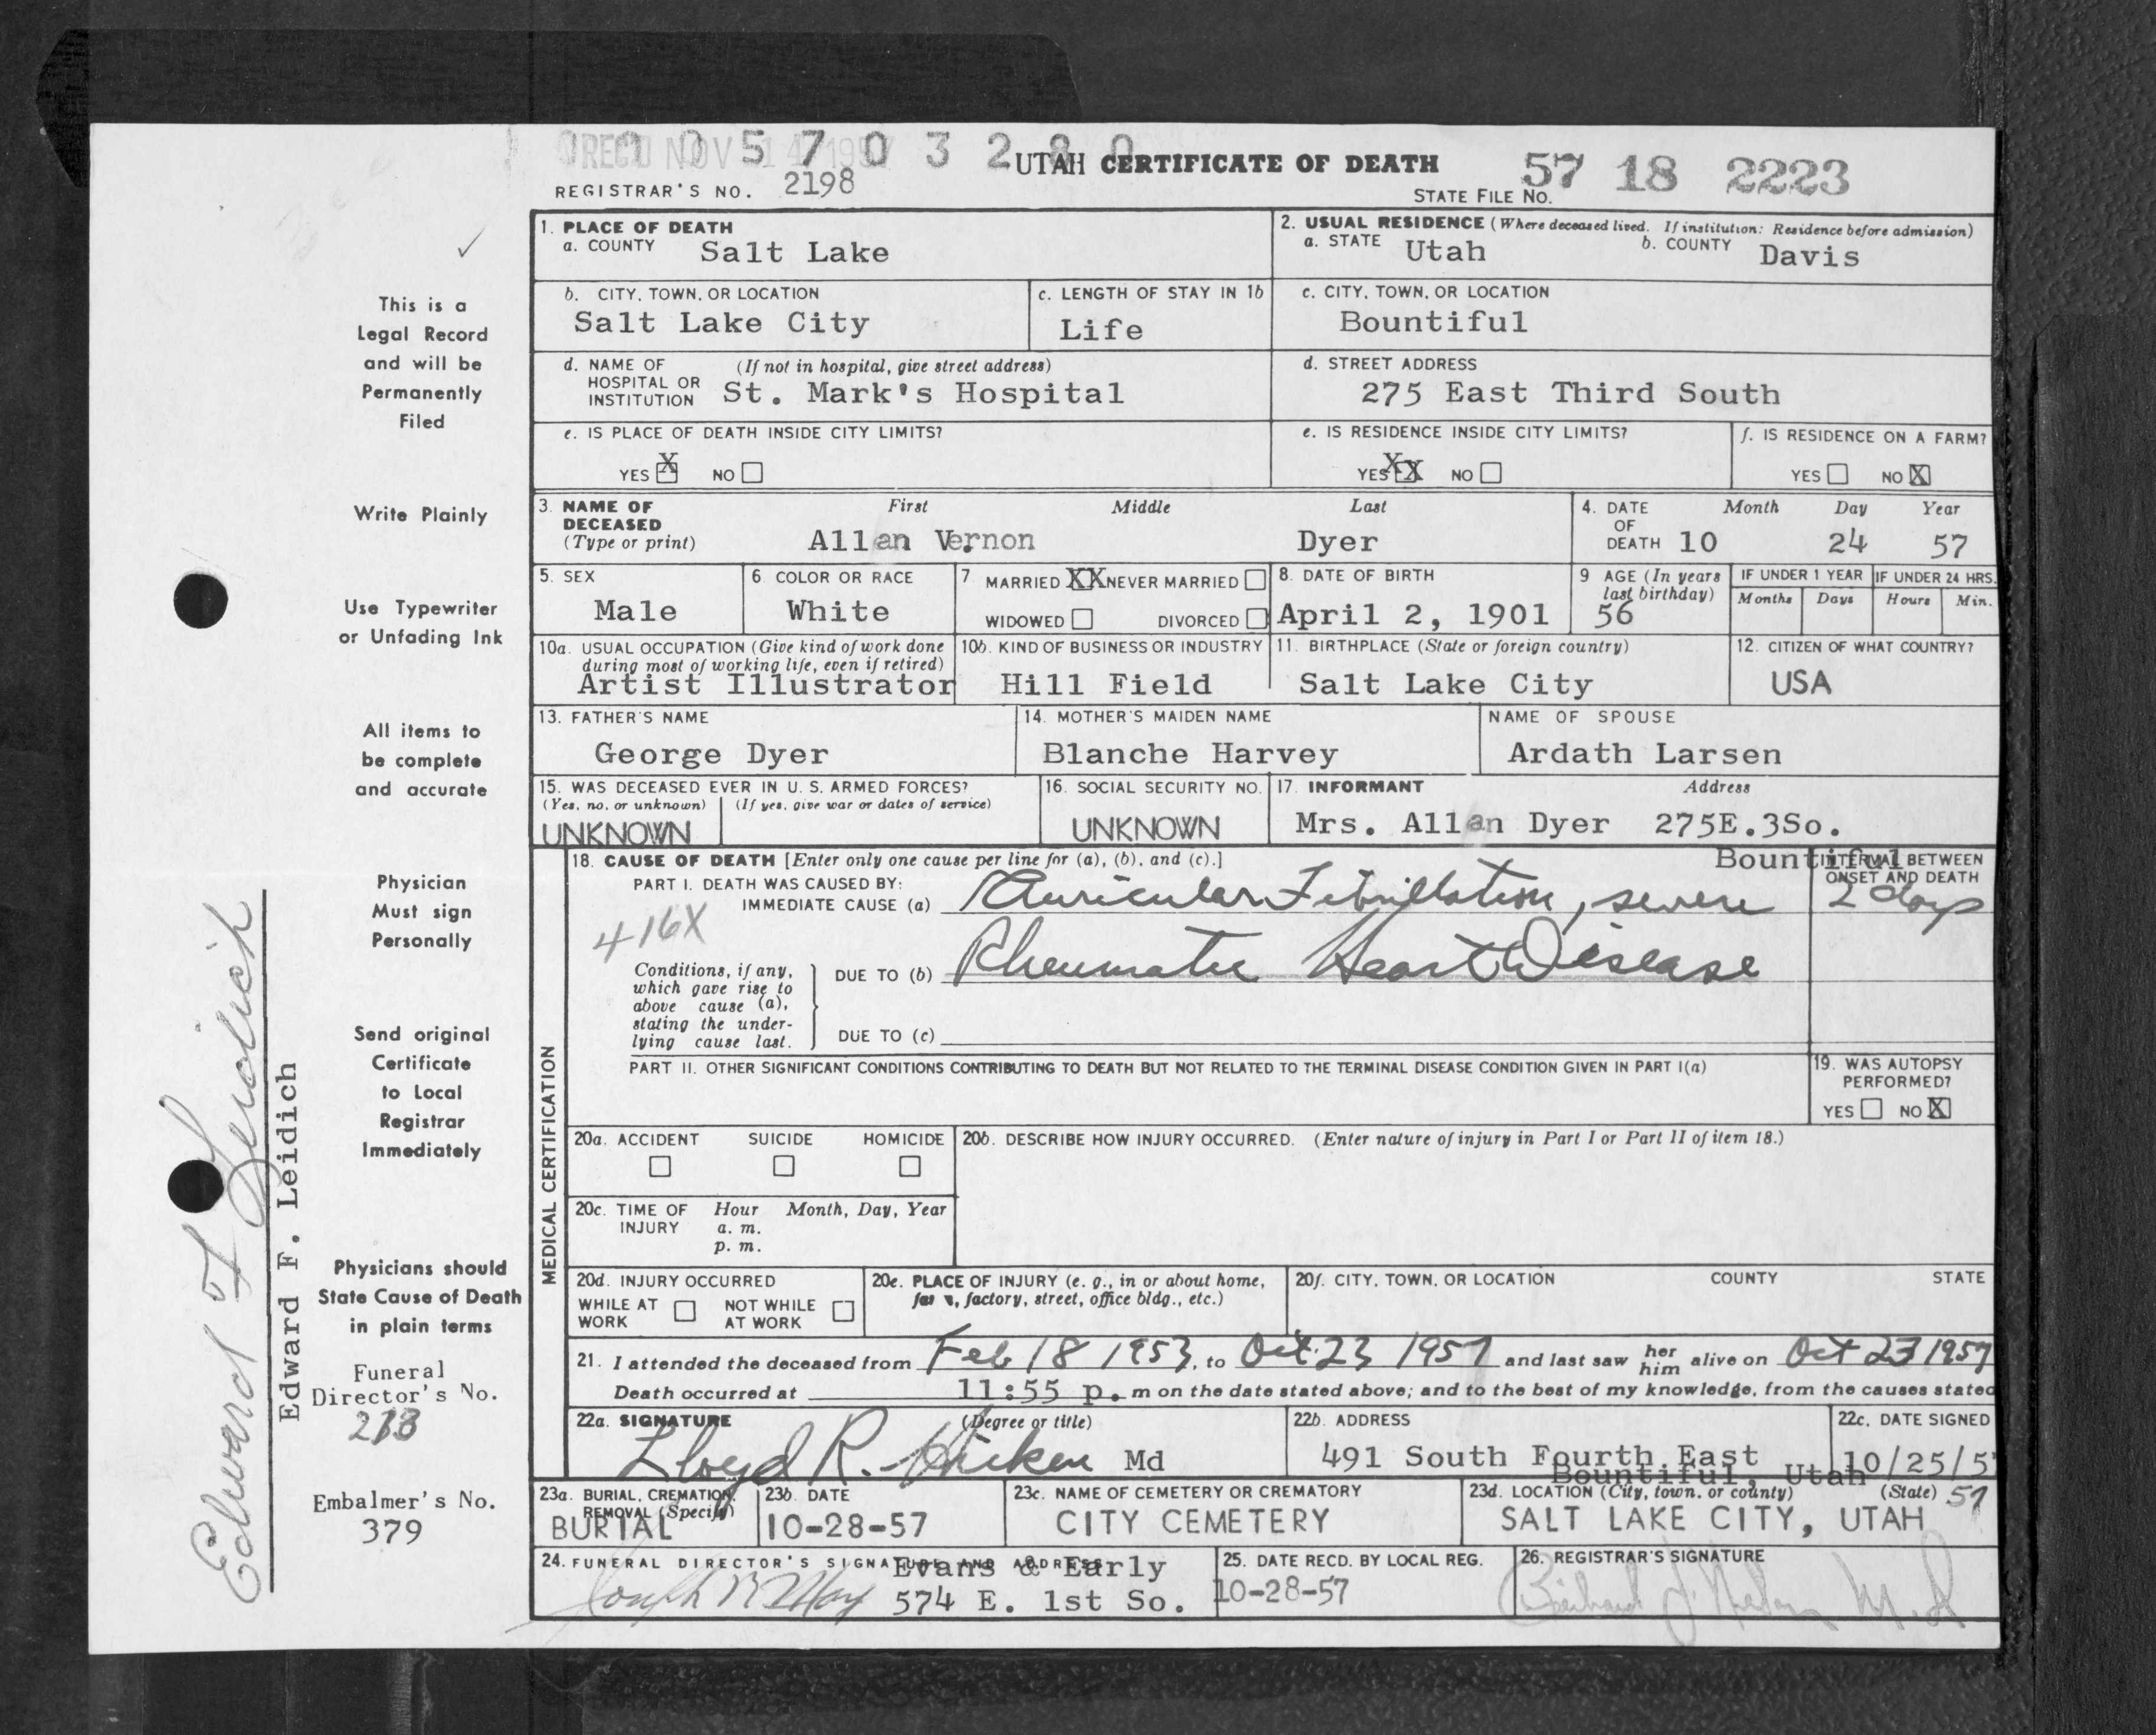 UTAH CERTIFICATE OF DEATH
57 18 2223
REGISTRAR'S NO. 2198
STATE FILE NO.
1. PLACE OF DEATH
a. COUNTY Salt Lake
2. USUAL RESIDENCE (Where deceased lived. If institution: Residence before admission)
a. STATE Utah b. COUNTY Davis
b. CITY, TOWN, OR LOCATION Salt Lake City
c. LENGTH OF STAY IN 1b Life
c. CITY, TOWN, OR LOCATION Bountiful
d. NAME OF HOSPITAL OR INSTITUTION (If not in hospital, give street address) St. Mark's Hospital
d. STREET ADDRESS 275 East Third South
e. IS PLACE OF DEATH INSIDE CITY LIMITS?
YES X NO
e. IS RESIDENCE INSIDE CITY LIMITS?
YES XX NO
f. IS RESIDENCE ON A FARM?
YES NO X
3. NAME OF DECEASED (Type or print) First Middle Last
Allan Vernon Dyer
4. DATE OF DEATH Month Day Year
10 24 57
5. SEX Male
6. COLOR OR RACE White
7. MARRIED XX NEVER MARRIED
WIDOWED DIVORCED
8. DATE OF BIRTH April 2, 1901
9 AGE (In years last birthday) 56
IF UNDER 1 YEAR Months Days
IF UNDER 24 HRS. Hours Min.
10a. USUAL OCCUPATION (Give kind of work done during most of working life, even if retired)
Artist Illustrator
10b. KIND OF BUSINESS OR INDUSTRY
Hill Field
11. BIRTHPLACE (State or foreign country)
Salt Lake City
12. CITIZEN OF WHAT COUNTRY?
USA
13. FATHER'S NAME
George Dyer
14. MOTHER'S MAIDEN NAME
Blanche Harvey
NAME OF SPOUSE
Ardath Larsen
15. WAS DECEASED EVER IN U. S. ARMED FORCES?
(Yes, no, or unknown) (If yes, give war or dates of service)
UNKNOWN
16. SOCIAL SECURITY NO.
UNKNOWN
17. INFORMANT Address
Mrs. Allan Dyer 275E.3So.
Bountiful
18. CAUSE OF DEATH [Enter only one cause per line for (a), (b), and (c).]
INTERVAL BETWEEN ONSET AND DEATH
PART I. DEATH WAS CAUSED BY:
IMMEDIATE CAUSE (a) Auricular Fibrillation, severe 2 days
416X
Conditions, if any, which gave rise to above cause (a), stating the underlying cause last.
DUE TO (b) Rheumatic Heart Disease
DUE TO (c)
PART II. OTHER SIGNIFICANT CONDITIONS CONTRIBUTING TO DEATH BUT NOT RELATED TO THE TERMINAL DISEASE CONDITION GIVEN IN PART I(a)
19. WAS AUTOPSY PERFORMED?
YES NO X
MEDICAL CERTIFICATION
20a. ACCIDENT SUICIDE HOMICIDE
20b. DESCRIBE HOW INJURY OCCURRED. (Enter nature of injury in Part I or Part II of item 18.)
20c. TIME OF INJURY Hour Month, Day, Year
a. m.
p. m.
20d. INJURY OCCURRED
WHILE AT WORK NOT WHILE AT WORK
20e. PLACE OF INJURY (e. g., in or about home, farm, factory, street, office bldg., etc.)
20f. CITY, TOWN, OR LOCATION COUNTY STATE
21. I attended the deceased from Feb 18 1953, to Oct 23 1957 and last saw her him alive on Oct 23 1957
Death occurred at 11:55 p. m on the date stated above; and to the best of my knowledge, from the causes stated
22a. SIGNATURE (Degree or title)
Lloyd R. Hicken Md
22b. ADDRESS
491 South Fourth East
Bountiful, Utah
22c. DATE SIGNED
10/25/5
57
23a. BURIAL, CREMATION, REMOVAL (Specify)
BURIAL
23b. DATE
10-28-57
23c. NAME OF CEMETERY OR CREMATORY
CITY CEMETERY
23d. LOCATION (City, town, or county) (State)
SALT LAKE CITY, UTAH
24. FUNERAL DIRECTOR'S SIGNATURE AND ADDRESS
Evans & Early
574 E. 1st So.
25. DATE RECD. BY LOCAL REG.
10-28-57
26. REGISTRAR'S SIGNATURE
This is a
Legal Record
and will be
Permanently
Filed
Write Plainly
Use Typewriter
or Unfading Ink
All items to
be complete
and accurate
Physician
Must sign
Personally
Send original
Certificate
to Local
Registrar
Immediately
Physicians should
State Cause of Death
in plain terms
Funeral
Director's No.
Embalmer's No.
379
Edward F Leidich
Edward F. Leidich